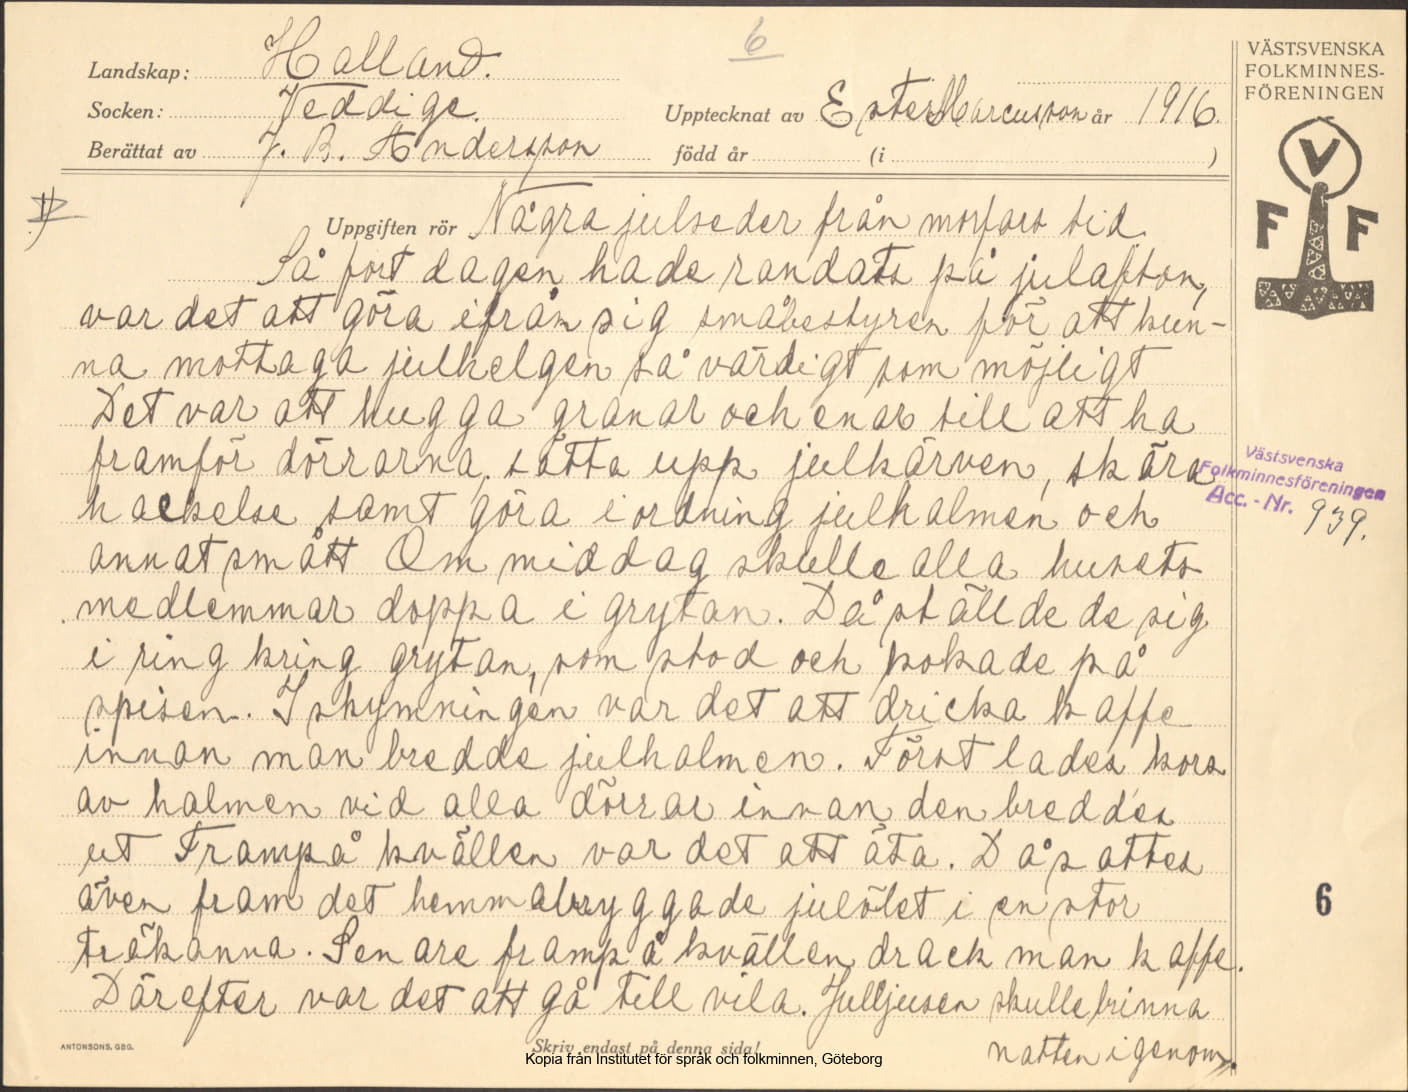 6
Landskap: Halland.
Socken: Veddige.
Upptecknat av Ester Marcusson år 1916.
Berättat av J. B. Andersson född år (i )
VÄSTSVENSKA
FOLKMINNES-
FÖRENINGEN
V
F F
Uppgiften rör Några julseder från morfars tid
Så fort dagen hade randats på julafton,
var det att göra ifrån sig småbestyren för att kun-
na mottaga julhelgen så värdigt som möjligt
Det var att hugga granar och enar till att ha
framför dörrarna, sätta upp julkärven, skära
hackelse samt göra i ordning julhalmen och
annat smått Om middag skulle alla husets
medlemmar doppa i grytan. Då ställde de sig
i ring kring grytan, som stod och kokade på
spisen. I skymningen var det att dricka kaffe
innan man bredde julhalmen. Först lades kors
av halmen vid alla dörrar innan den breddes
ut Frampå kvällen var det att äta. Då sattes
även fram det hemmabryggade julölet i en stor
träkanna. Senare frampå kvällen drack man kaffe.
Därefter var det att gå till vila. Julljusen skulle brinna
natten igenom.
Västsvenska
Folkminnesföreningen
Acc. - Nr. 939.
6
ANTONSONS, GBG.
Skriv endast på denna sida!
Kopia från Institutet för språk och folkminnen, Göteborg